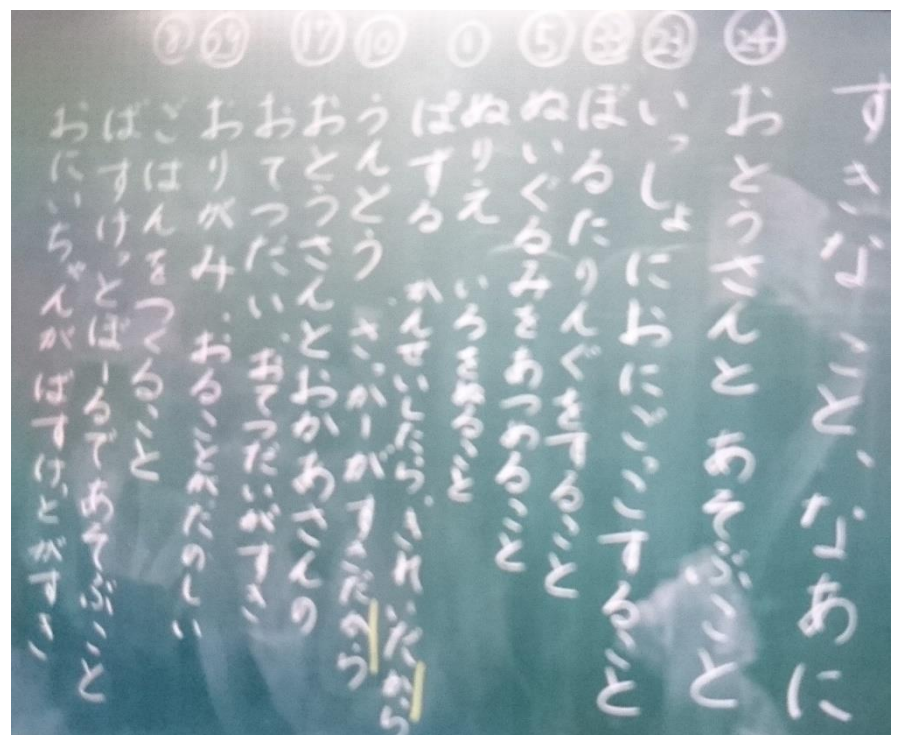 すきな こと、なあに
㉔ おとうさんと あそぶこと
㉓ いっしょにおにごっこすること
ぼるたりんぐをすること
⑤ ぬいぐるみをあつめること
① ぬりえ いろをぬること
ぱずる かんせいしたら、きれいだから
⑩ うんどう、さっかーがすきだから
⑰ おとうさんとおかあさんの
おてつだい、おてつだいがすき
㉙ おりがみ、おることがたのしい
⑧ ごはんをつくること
ばすけっとぼーるであそぶこと
おにいちゃんがばすけっとがすき